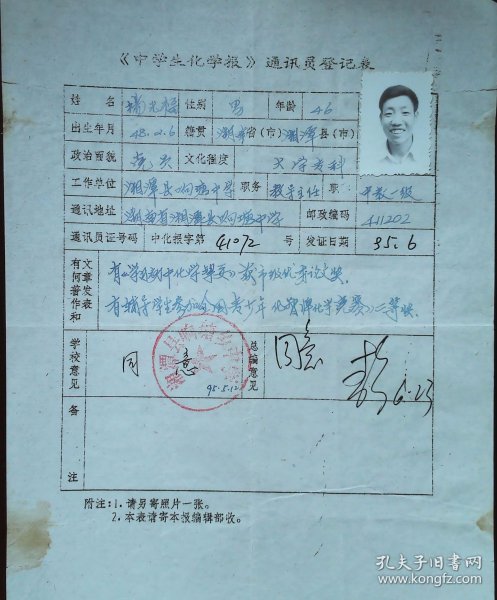 《中学生化学报》通讯员登记表
姓名 性别 男 年龄 46
出生年月 48.2.6 籍贯 湖南省(市)湘潭县(市)
政治面貌 党员 文化程度 大学专科
工作单位 湘潭县响塘中学 职务 教导主任 职 中教一级
通讯地址 湖南省湘潭县响塘中学 邮政编码 411202
通讯员证号码 中化报字第 41072 号 发证日期 95.6
有何著作和文章发表
有辅导学生参加全国青少年化学竞赛 二等奖
学校意见 同意 95.5.12 总编意见 同意 6.23
备注
附注:1.请另寄照片一张。
2.本表请寄本报编辑部收。
孔夫子旧书网
www.kongfz.com